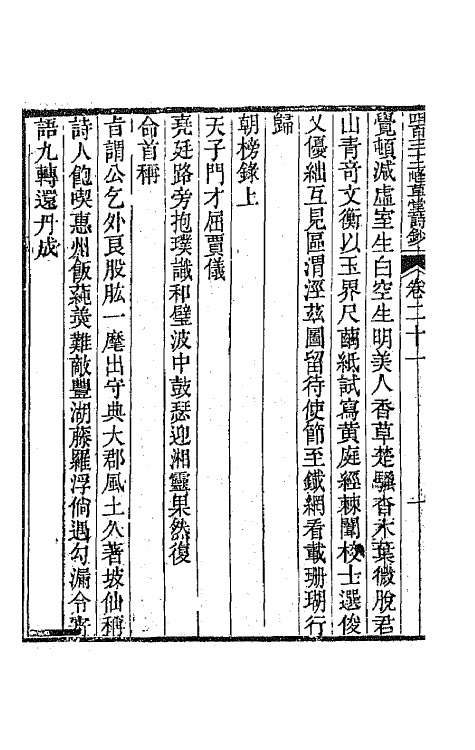 草堂詩鈔　卷二十一
覺頓減虛室生白空生明美人香草楚騷杳木葉微脫君
山青奇文衡以玉界尺繭紙試寫黃庭經棘闈校士選俊
乂優絀互見區渭涇茲圖留待使節至鐵網看載珊瑚行
歸
朝榜錄上
天子門才屈賈儀
堯廷路旁抱璞識和璧波中鼓瑟迎湘靈果然復
命首稱
旨謂公乞外良股肱一麾出守典大郡風土久著坡仙稱
詩人飽喫惠州飯蓴羮難敵豐湖藤羅浮倘遇勾漏令寄
語九轉還丹成